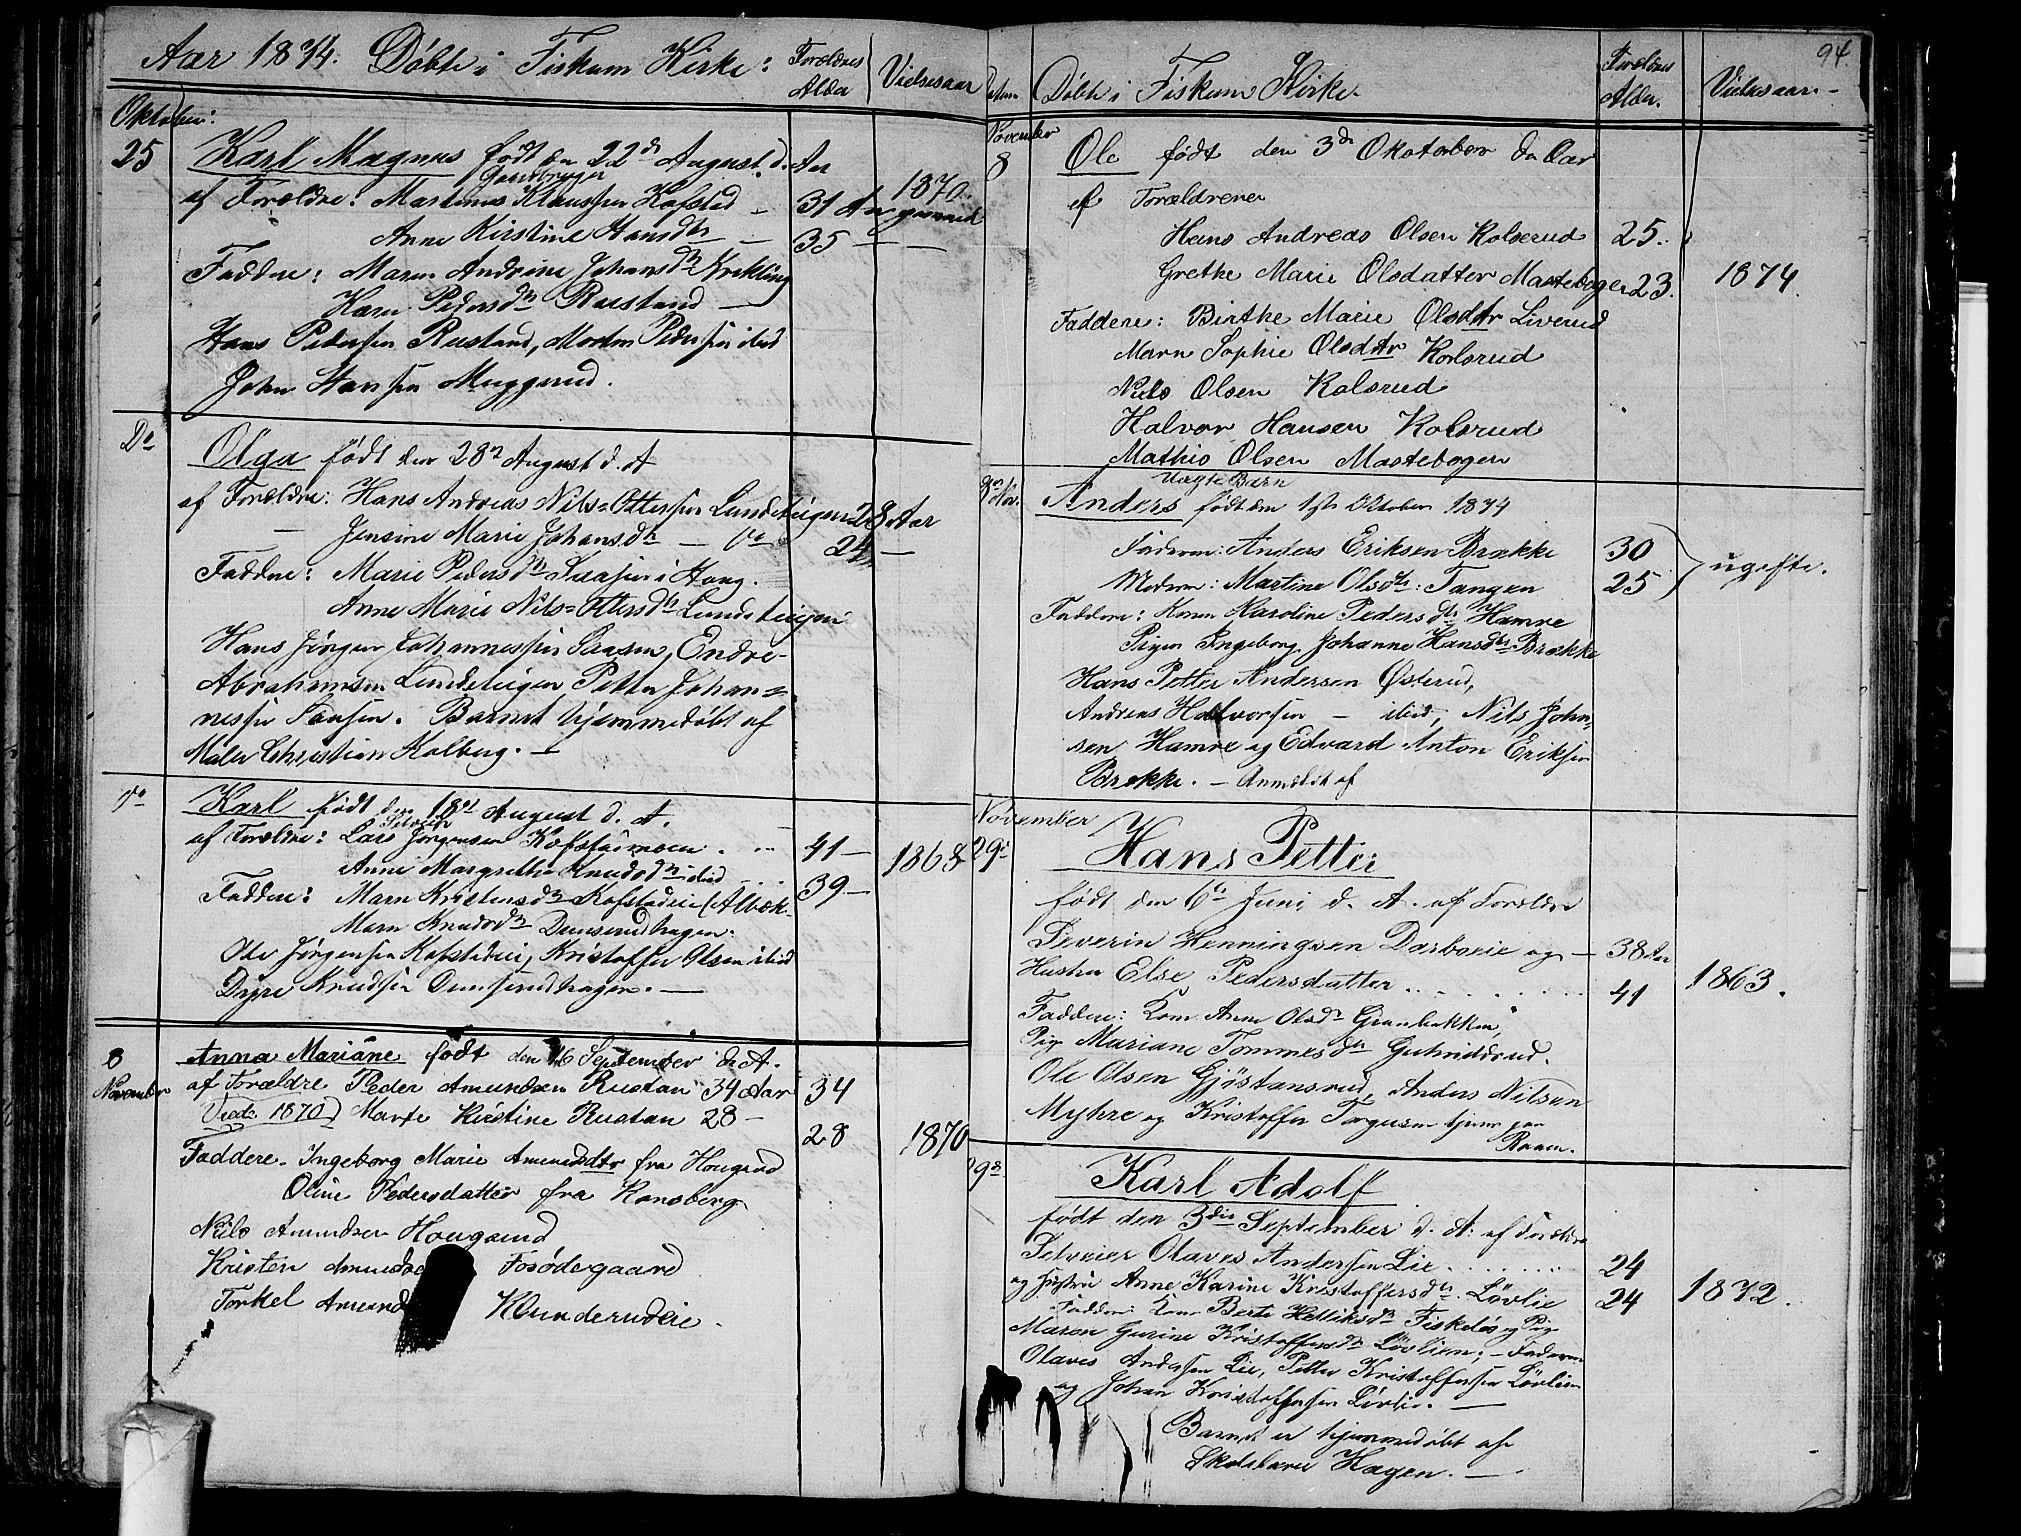 Aar 1874. Døbte i Fiskum Kirke: Forældres Alder Vielsesaar
Oktober:
25 Karl Magnus født den 22de August d. Aar
af Forældre: Martinus Klaussen Kofsted 31 Aar 1870
Anne Kirstine Hansdtr 35 — —
Faddere: Maren Andrine Johansdtr Krekling
Karen Pedersdtr Rustand —
Hans Pedersen Rustand, Morten Pedersen ibid
John Hansen Muggerud.
Do Olga født den 28de August d. A
af Forældre: Hans Andreas Nils-Ottersen Lundeteigen 28 Aar
— Jensine Marie Johansdtr — Do 24 —
Faddere: Marie Pedersdtr Saasen i Haug.
Anne Marie Nils-Ottersdtr Lundeteigen
Hans Jørgen Johannessen Saasen, Endre
Abrahamsen Lundeteigen, Petter Johan=
nessen Saasen. Barnet hjemmedøbt af
Maler Christian Kolberg. —
Do Karl født den 18de August d. A.
af Forældre: Lars Jørgensen Kofstadmoen 41 —
Anne Margrethe Knudsdtr ibid 39 — 1868
Faddere: Maren Kristensdtr Kofstadeie (Albæk
Maren Knudsdtr Dunserudhagen.
Ole Jørgensen Kofstadeie, Kristoffer Olsen ibid
Dyre Knudsen Dunserudhagen. —
8 November Anna Mariane født den 16 September d. A.
af Forældre Peder Amundsen Rustan 34 Aar 34
Viede 1870) Marte Kirstine Rustan 28 — 28 1870
Faddere. Ingeborg Marie Amundsdtr fra Hougerud
Oline Pedersdatter fra Konsberg
Nils Amundsen Hougerud
Kristen Fosødegaard
Torkel Kunderudeie.
94
Datum Døbte i Fiskum Kirke Forældres Alder. Vielsesaar
November
8 Ole født den 3de Okotober da Aar
af Forældrene
Hans Andreas Olsen Kolserud 25.
Grethe Marie Olsdatter Mastebogen 23. 1874.
Faddere: Birthe Marie Olsdtr Liverud
Marn Sophie Olsdtr Kolsrud
Nils Olsen Kolsrud
Halvor Hansen Kolsrud
Mathis Olsen Mastebogen
8de Nov. Uægte Barn
Anders født den 1ste Oktober 1874
Faderen: Anders Eriksen Brække 30
Moderen: Martine Olsdtr: Tangen 25 ugifte.
Faddere: Karen Karoline Pedersdtr Hamre
Pigen Ingeborg Johanne Hansdtr Brække
Hans Petter Andersen Østerud,
Andreas Halvorsen — ibid, Nils John=
sen Hamre og Edvard Anton Eriksen
Brække. — Anmeldt af
November
29de Hans Petter
født den 6te Juni d. A. af Forældre
Severin Henningsen Darboeie og — 38 Aar
Hustru Else Pedersdatter 41 1863.
Faddere: Kone Anne Olsdtr Granbakken
Pig Mariane Tommesdtr
Ole Olsen Gjøstansrud, Anders Nilsen
Myhre og Kristoffer Torgersen tjener paa
Raaen.
29de Karl Adolf
født den 3die September d. A. af Forældre
Selveier Olaves Andersen Lie 24
og Hustru Anne Karine Kristoffersdtr Løvlie 24 1872.
Faddere: Kone Berte Helliksdtr Fiskeløs og Pig
Maren Gurine Kristoffersdtr Løvlien; — Faderen
Olaves Andersen Lie, Petter Kristoffersen Løvlien
og Johan Kristoffersen Løvlie. —
Barnet er hjemmedøbt af
Skolelærer Hagen. —